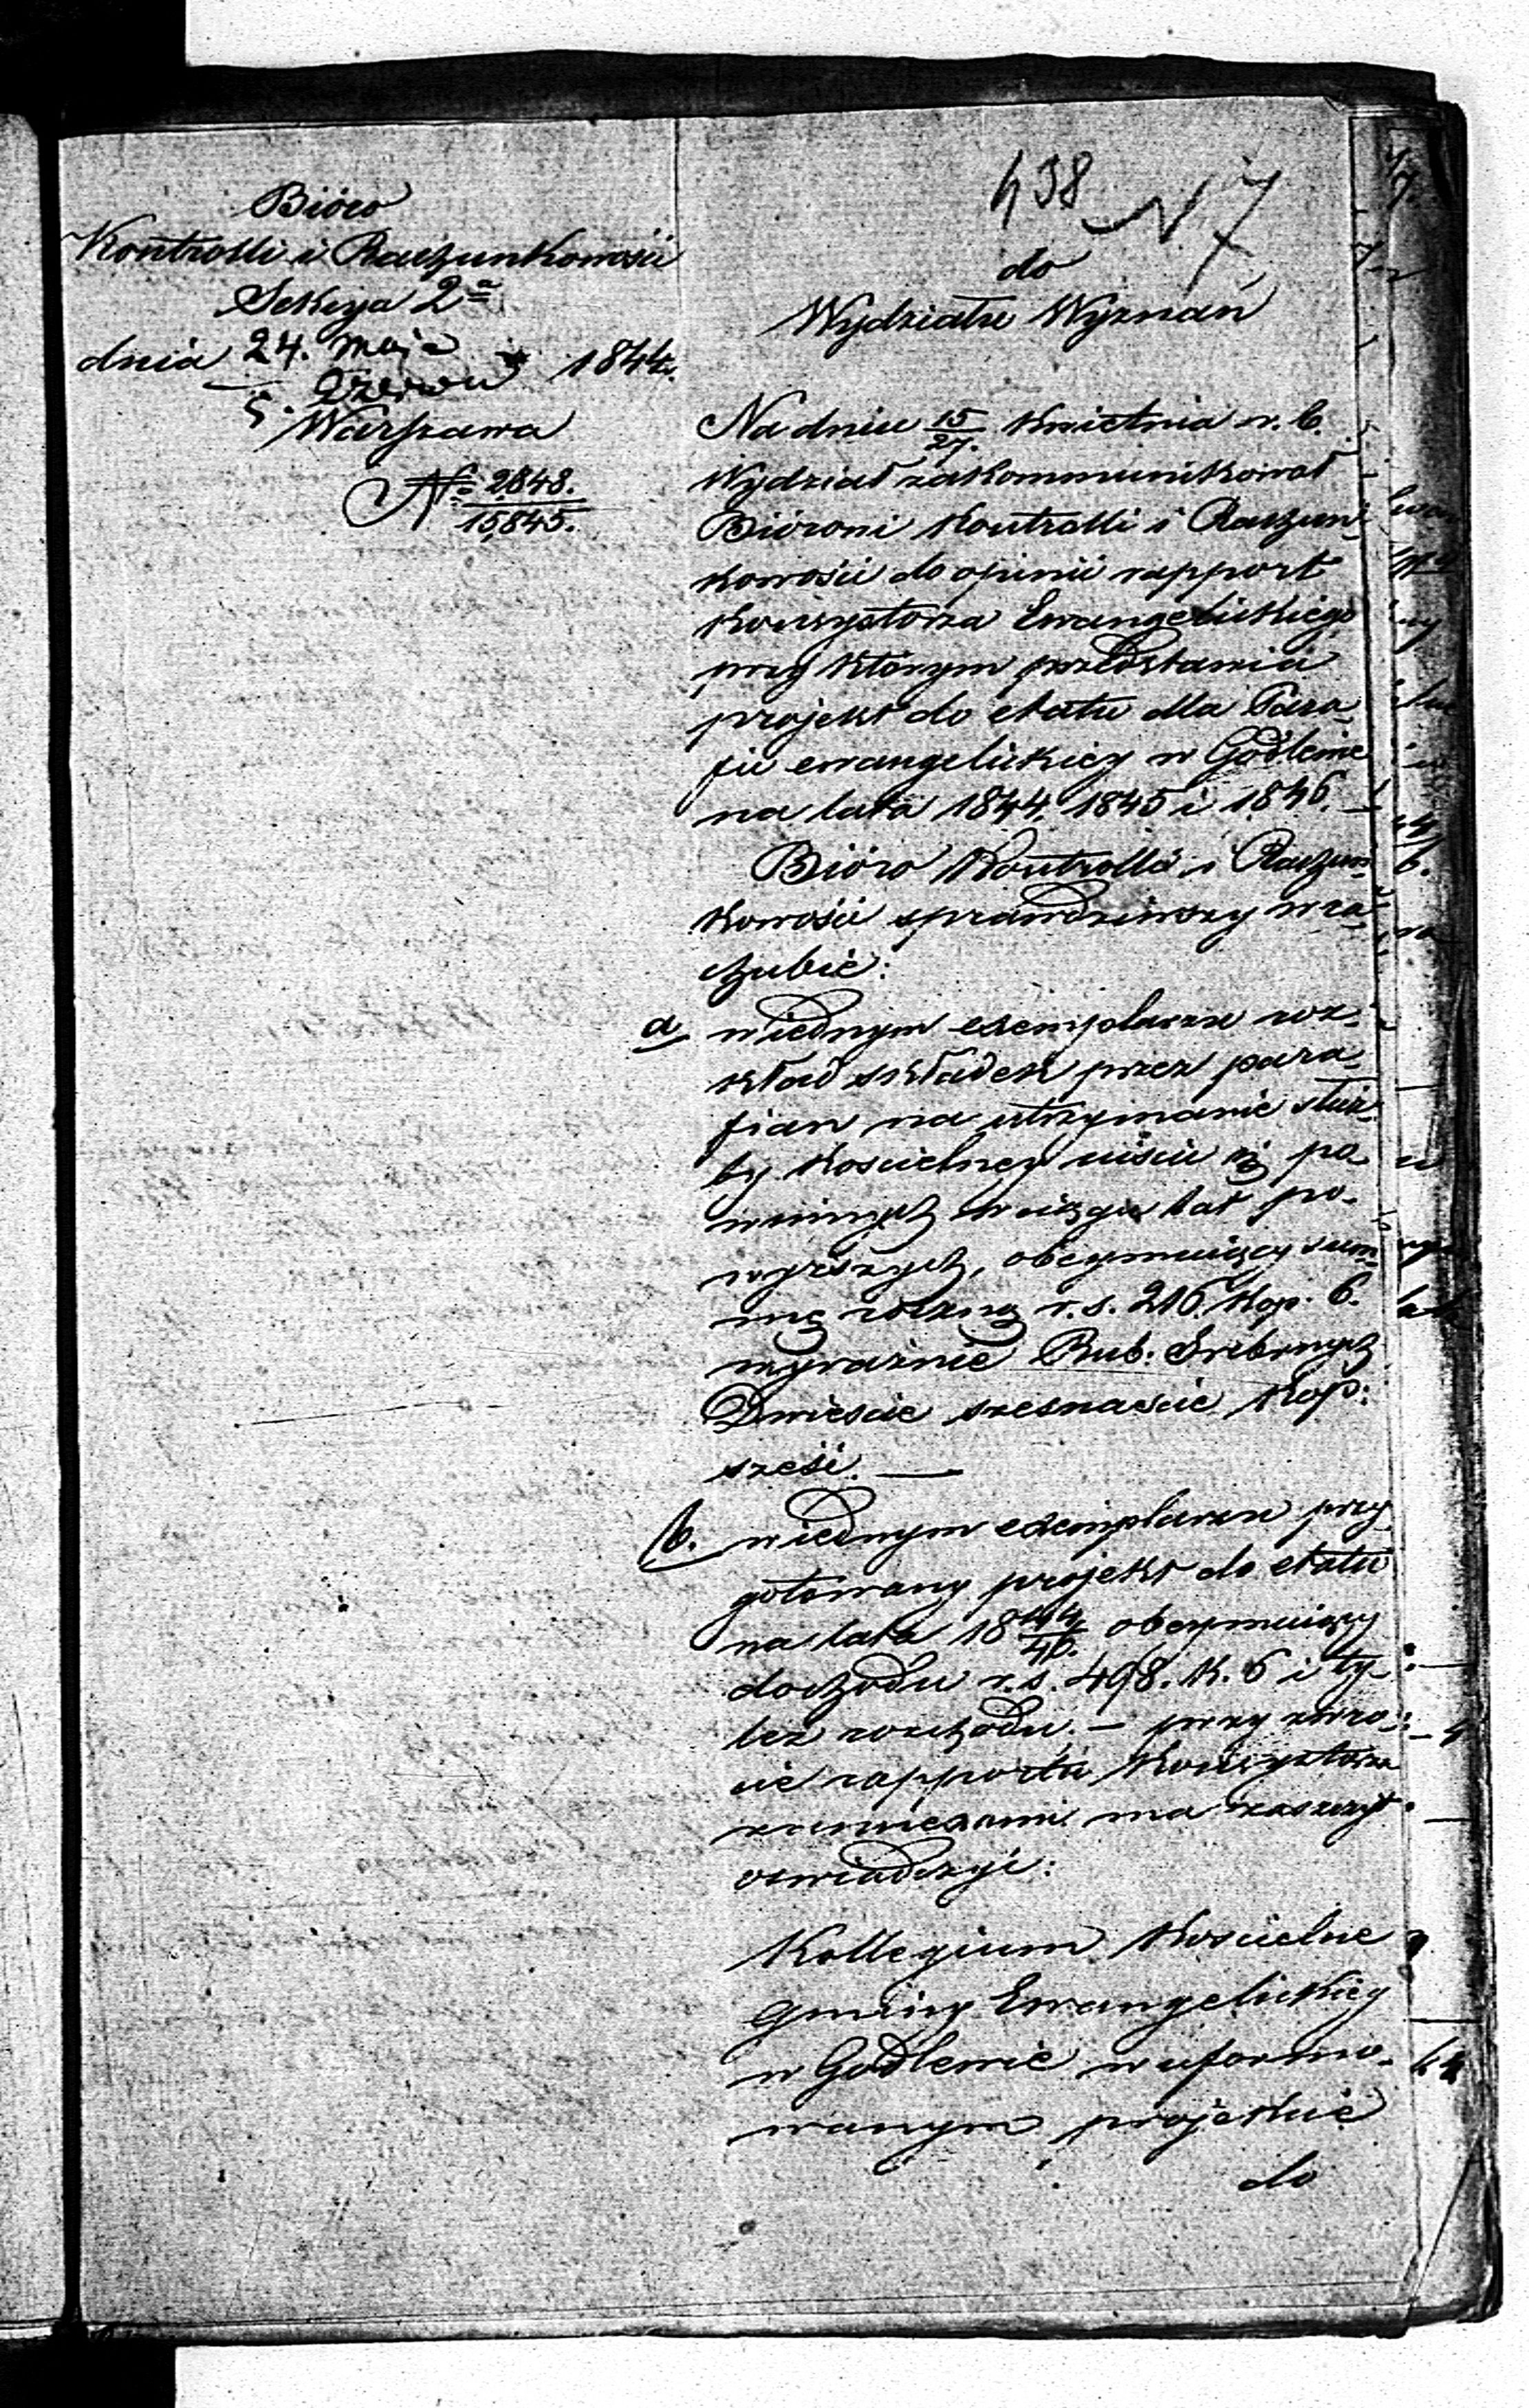 Bióro
Kontrolli i Rachunkowości
Sekcya 2ª
dnia 24. Maja 1844.
5. Czerwca
Warszawa
No 2848.
15,845.
438 N 7
do
Wydziału Wyznań
Na dniu 15/27. Kwietnia r. b.
Wydział zakommunikował
Bióroni Kontrolli i Rachun-
kowości do opinii rapport
Konsystorza Ewangelickiego
przy którym przedstawia
projekt do etatu dla Para-
fii ewangelickiey w Godlewie
na lata 1844. 1845 i 1846. —
Bióro Kontrolli i Rachun-
kowości sprawdziwszy w ra-
chubie:
a. w iednym exemplarzu roz-
kład składek przez para-
fian na utrzymanie służ-
by Koscielney uiścić się po-
winnych w ciągu lat po-
wyższych, obeymuiący sum-
mę roczną r. s. 216. Kop. 6.
wyraznie Rub: Srebrnych
Dwieście szesnascie Kop:
sześć. —
b. w iednym exemplarzu przy-
gotowany projekt do etatu
na lata 18 44/46. obeymuiący
dochodu r. s. 498. k. 6 i ty-
lez rozchodu. — przy zwro-
cie rapportu Konsystorza
z annexami ma zaszczyt
oswiadczyć:
Kollegium Koscielne
Gminy Ewangelickiey
w Godlewie w uformo-
wanym projekcie
do